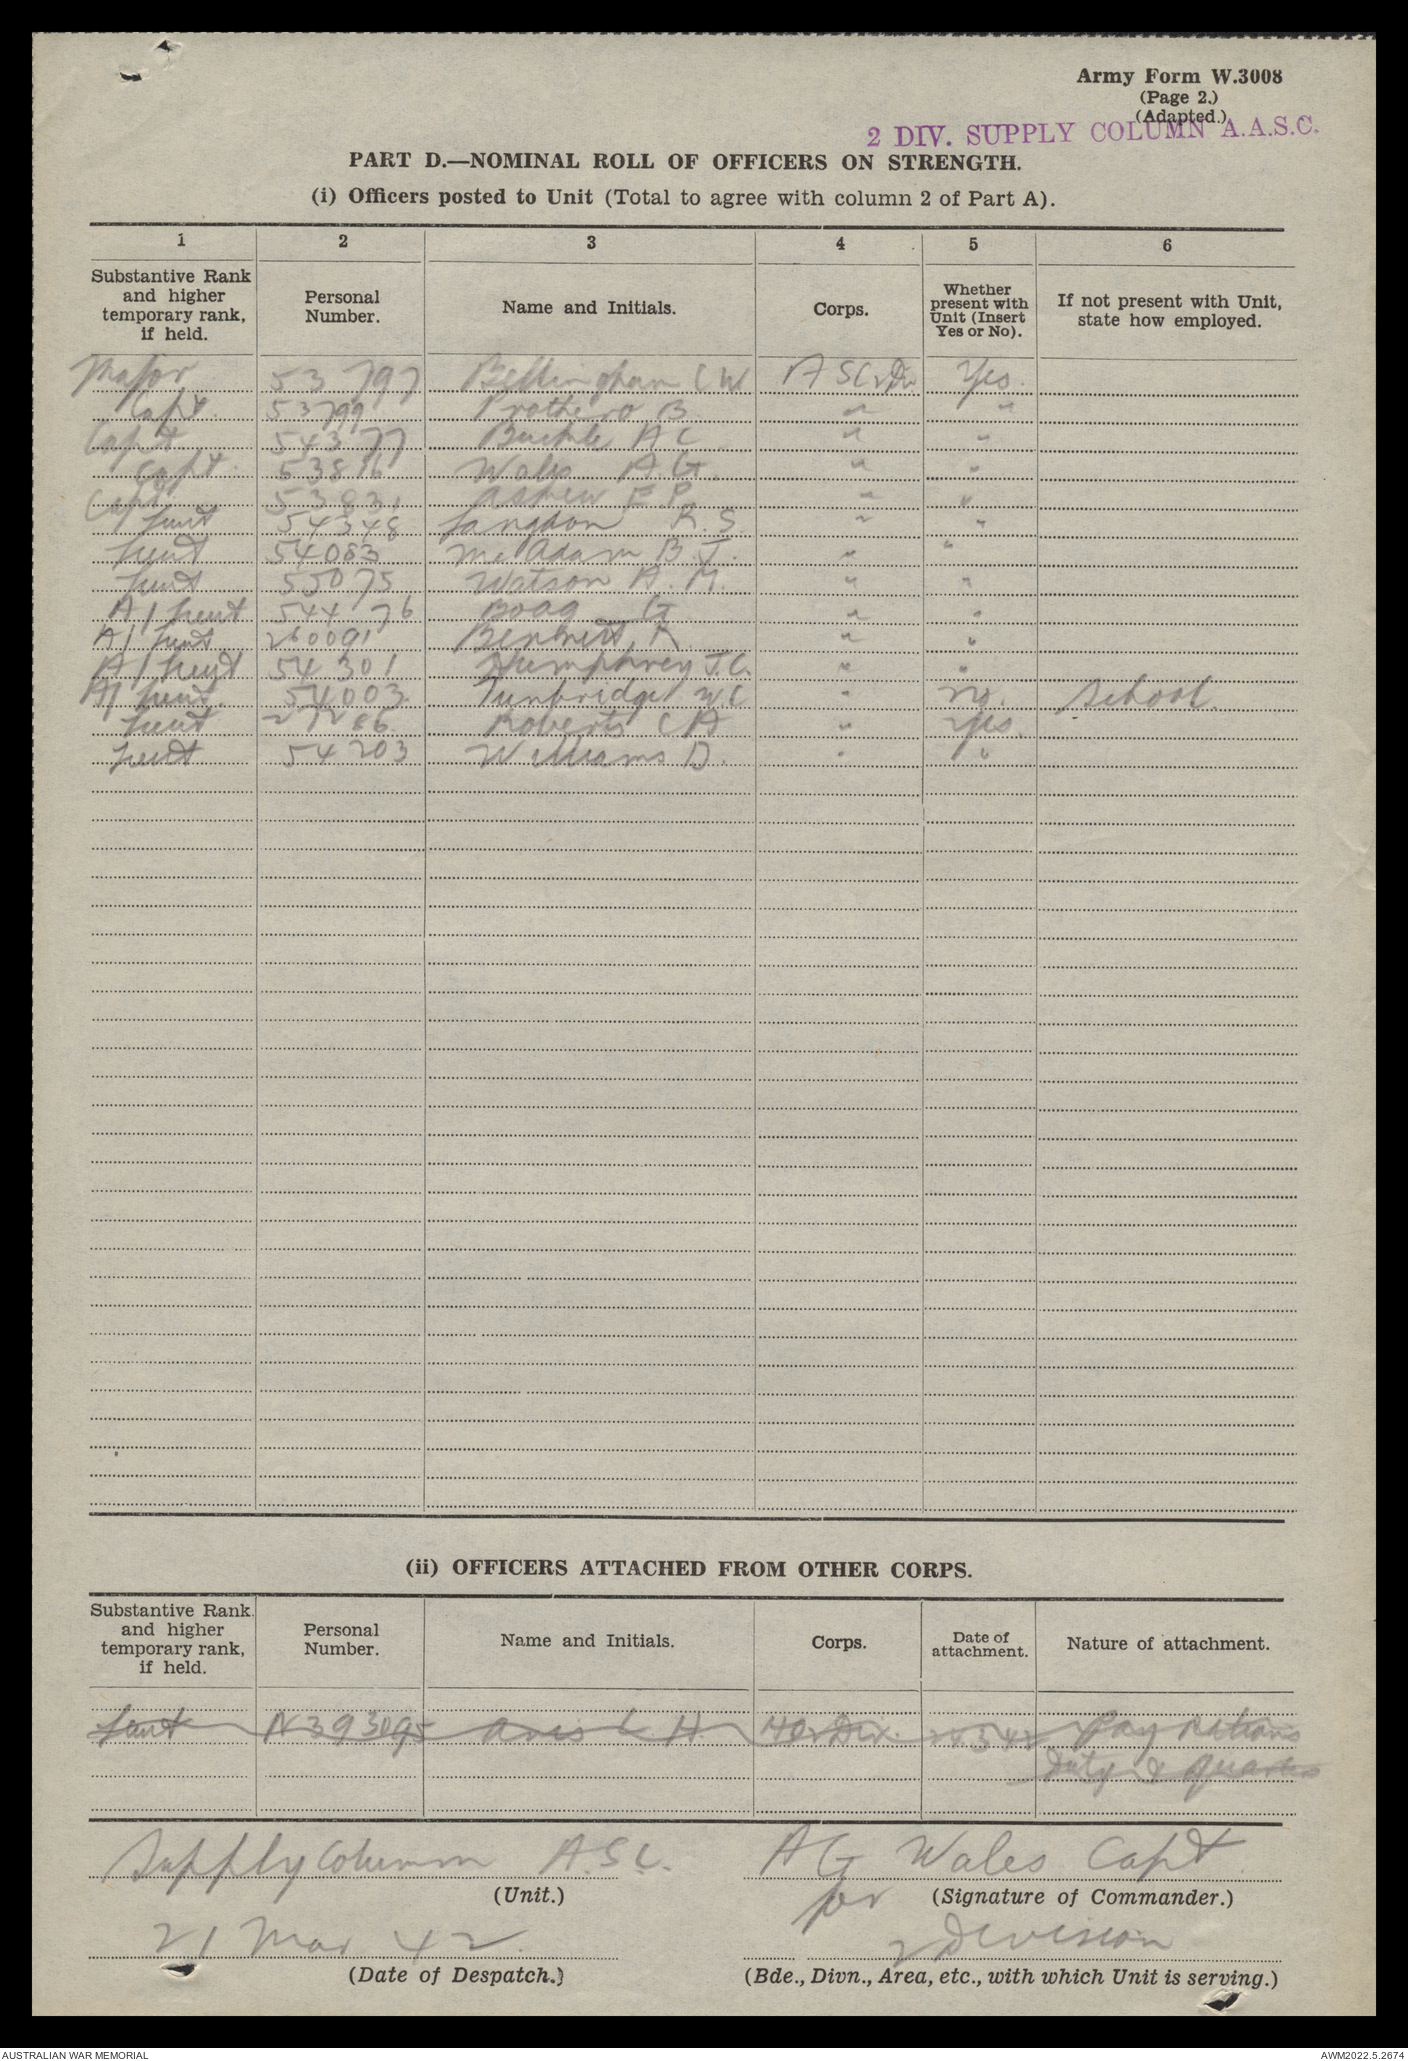 Army Form W.3008
(Page 2.)
(Adapted.)
2 DIV. SUPPLY COLUMN A.A.S.C.
PART D.—NOMINAL ROLL OF OFFICERS ON STRENGTH.
(i) Officers posted to Unit (Total to agree with column 2 of Part A).
1 2 3 4 5 6
Substantive Rank and higher temporary rank, if held. Personal Number. Name and Initials. Corps. Whether present with Unit (Insert Yes or No). If not present with Unit, state how employed.
Major 53797 Bellingham C W ASC 2 Div Yes.
Capt. 53799 Prothero B. " "
Capt 54377 Buckle A C " "
Capt. 53816 Wales A.G. " "
Capt 53831 Askew E.P. " "
Lieut 54348 Langdon R.S. " "
Lieut 54083 McAdam B.J. " "
Lieut 55075 Watson A.M. " "
A/Lieut 54476 Boag G " "
A/Lieut 260091 Bennett R. " "
A/Lieut 54301 Humphrey J.C. " "
A/Lieut. 54003 Tunbridge W.C " No. School
Lieut 27286 Roberts C A " Yes.
Lieut 54203 Williams D. " "
(ii) OFFICERS ATTACHED FROM OTHER CORPS.
Substantive Rank and higher temporary rank, if held. Personal Number. Name and Initials. Corps. Date of attachment. Nature of attachment.
Lieut N393095 Avis L. H. HQ 2 Div. Pay rations
Duty & quarters
Supply Column A.S.C. AG Wales Capt.
(Unit.) for (Signature of Commander.)
21 Mar 42. 2 Division
(Date of Despatch.) (Bde., Divn., Area, etc., with which Unit is serving.)
AUSTRALIAN WAR MEMORIAL AWM2022.5.2674